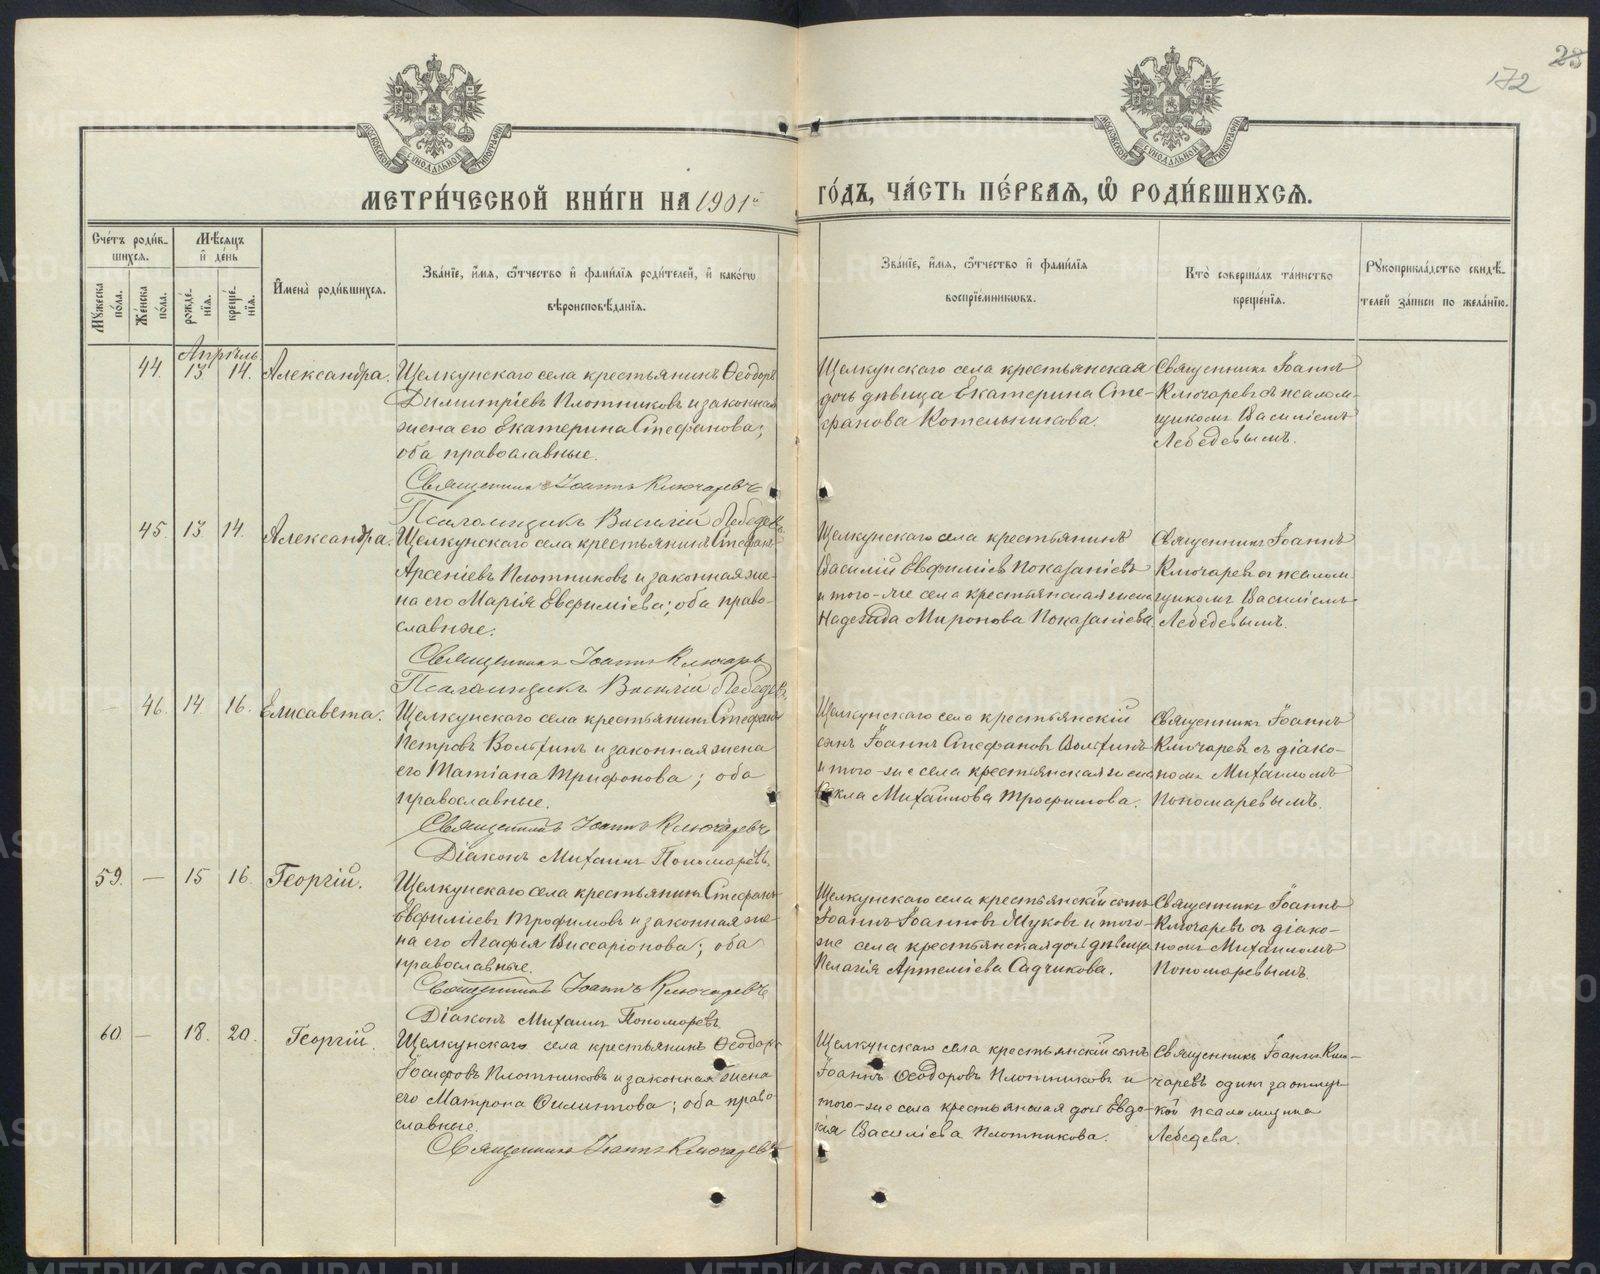 28
172
МОСКОВСКОЙ СѴНОДАЛЬНОЙ ТИПОГРАФІИ
МОСКОВСКОЙ СѴНОДАЛЬНОЙ ТИПОГРАФІИ
МЕТРИ́ЧЕСКОЙ КНИ́ГИ НА 1901й ГО́ДЪ, ЧА́СТЬ ПЕ́РВАЯ, Ѡ РОДИ́ВШИХСЯ.
Сче́тъ роди́в-
шихся.
Мꙋ́жеска по́ла.
Же́нска по́ла.
Мѣ́сяцъ и де́нь
рожде́нїя.
креще́нїя.
И҆мена̀ роди́вшихся.
Зва́нїе, и҆́мя, ѻ҆́тчество и҆ фами́лїя роди́телей, и҆ како́гѡ
вѣроисповѣ́данїя.
Зва́нїе, и҆́мя, ѻ҆́тчество и҆ фами́лїя
воспрїе́мникѡвъ.
Кто̀ соверша́лъ та́инство
креще́нїя.
Рꙋкоприкла́дство свидѣ́-
телей за́писи по жела́нїю.
Апрѣль
44. 13 14. Александра.
Щелкунскаго села крестьянинъ Ѳеодоръ
Димитріевъ Плотниковъ и законная
жена его Екатерина Стефанова;
оба православные.
Священникъ Іоаннъ Ключаревъ
Псаломщикъ Василій Лебедевъ
Щелкунскаго села крестьянская
дочь дѣвица Екатерина Сте-
фанова Котельникова.
Священникъ Іоаннъ
Ключаревъ съ псалом-
щикомъ Василіемъ
Лебедевымъ.
45. 13 14. Александра.
Щелкунскаго села крестьянинъ Стефанъ
Арсеніевъ Плотниковъ и законная же-
на его Марія Евфиміева; оба право-
славные.
Священникъ Іоаннъ Ключаръ
Псаломщикъ Василій Лебедевъ
Щелкунскаго села крестьянинъ
Василій Евфиміевъ Показаніевъ
и того-же села крестьянская жена
Надежда Миронова Показаніева.
Священникъ Іоаннъ
Ключаревъ съ псалом-
щикомъ Василіемъ
Лебедевымъ.
— 46. 14 16. Елисавета.
Щелкунскаго села крестьянинъ Стефанъ
Петровъ Волхинъ и законная жена
его Татіана Трифонова; оба
православные.
Священникъ Іоаннъ Ключаревъ
Діаконъ Михаилъ Пономаревъ
Щелкунскаго села крестьянскій
сынъ Іоаннъ Стефановъ Волхинъ
и того-же села крестьянская жена
Ѳекла Михайлова Трофимова.
Священникъ Іоаннъ
Ключаревъ съ діако-
номъ Михаиломъ
Пономаревымъ.
59. — 15 16. Георгій.
Щелкунскаго села крестьянинъ Стефанъ
Евфиміевъ Трофимовъ и законная же-
на его Агафія Виссаріонова; оба
православные.
Священникъ Іоаннъ Ключаревъ
Діаконъ Михаилъ Пономаревъ
Щелкунскаго села крестьянскій сынъ
Іоаннъ Іоанновъ Жуковъ и того-
же села крестьянская дочь дѣвица
Пелагія Артеміева Садчикова.
Священникъ Іоаннъ
Ключаревъ съ діако-
номъ Михаиломъ
Пономаревымъ.
60 — 18. 20. Георгій.
Щелкунскаго села крестьянинъ Ѳеодоръ
Іосифовъ Плотниковъ и законная жена
его Матрона Филиппова; оба право
славные.
Священникъ Іоаннъ Ключаревъ
Щелкунскаго села крестьянскій сынъ
Іоаннъ Ѳеодоровъ Плотниковъ и
того-же села крестьянская дочь Евдо-
кія Василіева Плотникова.
Священникъ Іоаннъ Клю-
чаревъ одинъ за отлуч-
кой псаломщика
Лебедева.
METRIKI.GASO-URAL.RU